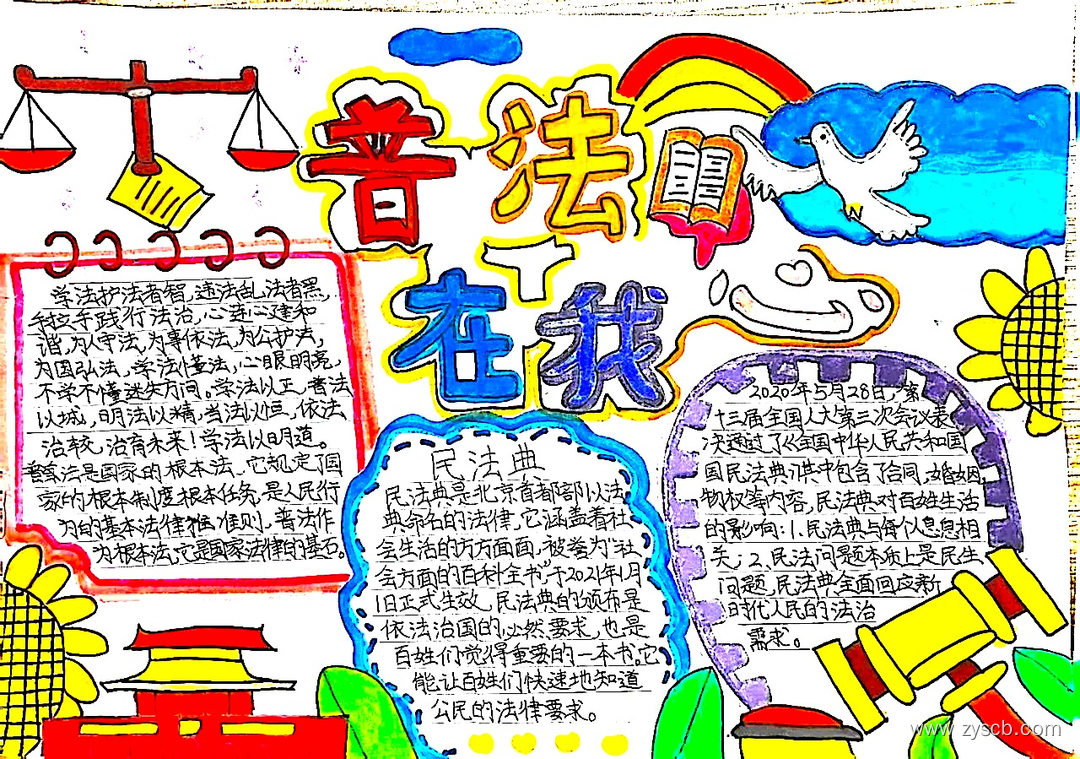 普法
在我
学法护法者智,违法乱法者黑,
手拉手践行法治,心连心建和
谐,为人守法,为事依法,为公护法,
为国弘法,学法懂法,心眼明亮,
不学不懂迷失方向。学法以正,普法
以城,明法以精,当法以恒,依法
治较,治育未来!学法以明道。
普法是国家的根本法,它规定了国
家的根本制度根本任务,是人民行
为的基本法律准则,普法作
为根本法,它是国家法律的基石。
民法典
民法典是北京首都部以法
典命名的法律,它涵盖着社
会生活的方方面面,被誉为“社
会方面的百科全书”于2021年1月
1日正式生效,民法典的颁布是
依法治国的必然要求,也是
百姓们觉得重要的一本书。它
能让百姓们快速地知道
公民的法律要求。
2020年5月28日,第
十三届全国人大第三次会议表
决通过了《全国中华人民共和国
国民法典》其中包含了合同,婚姻
物权等内容,民法典对百姓生活
的影响:1.民法典与每个人息息相
关;2.民法问题本质上是民生
问题,民法典全面回应新
时代人民的法治
需求。
www.zyscb.com